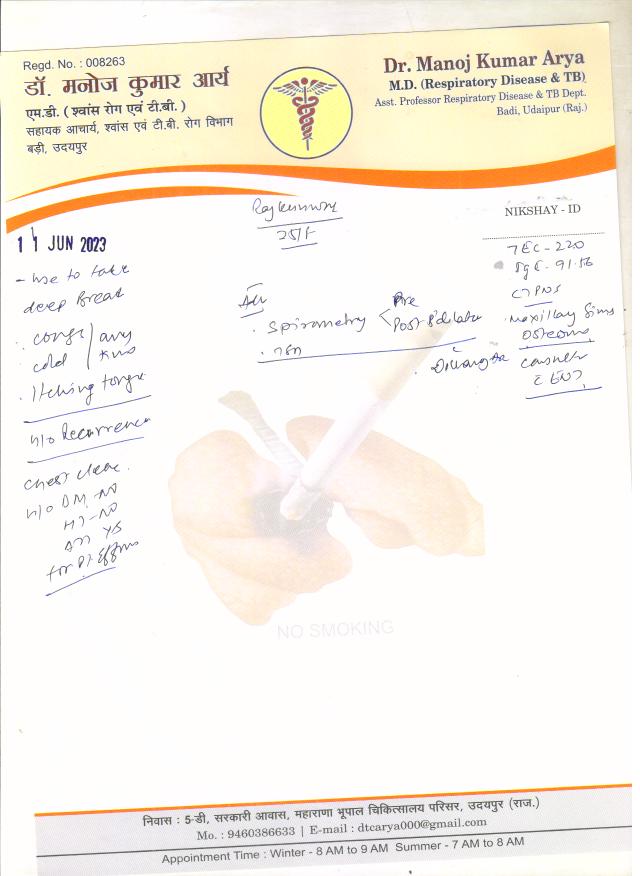 Regd. No. : 008263
डॉ. मनोज कुमार आर्य
एम.डी. ( श्वांस रोग एवं टी.बी. )
सहायक आचार्य, श्वांस एवं टी.बी. रोग विभाग
बड़ी, उदयपुर
Dr. Manoj Kumar Arya
M.D. (Respiratory Disease & TB)
Asst. Professor Respiratory Disease & TB Dept.
Badi, Udaipur (Raj.)
25/F
NIKSHAY - ID
11 JUN 2023
TEC - 220
IgE - 91.56
CT PNS
Maxillary Sinus
Osteoma
consult
ENT
- use to take
deep Breath
cough
cold
Itching tongue
H/o Recurrence
chest clear.
H/o DM - NO
HT - NO
ATT YES
for Pl. Effusion
Adv
. Spirometry < Pre
Post Bdilator
NO SMOKING
निवास : 5-डी, सरकारी आवास, महाराणा भूपाल चिकित्सालय परिसर, उदयपुर (राज.)
Mo. : 9460386633 | E-mail : dtcarya000@gmail.com
Appointment Time : Winter - 8 AM to 9 AM Summer - 7 AM to 8 AM